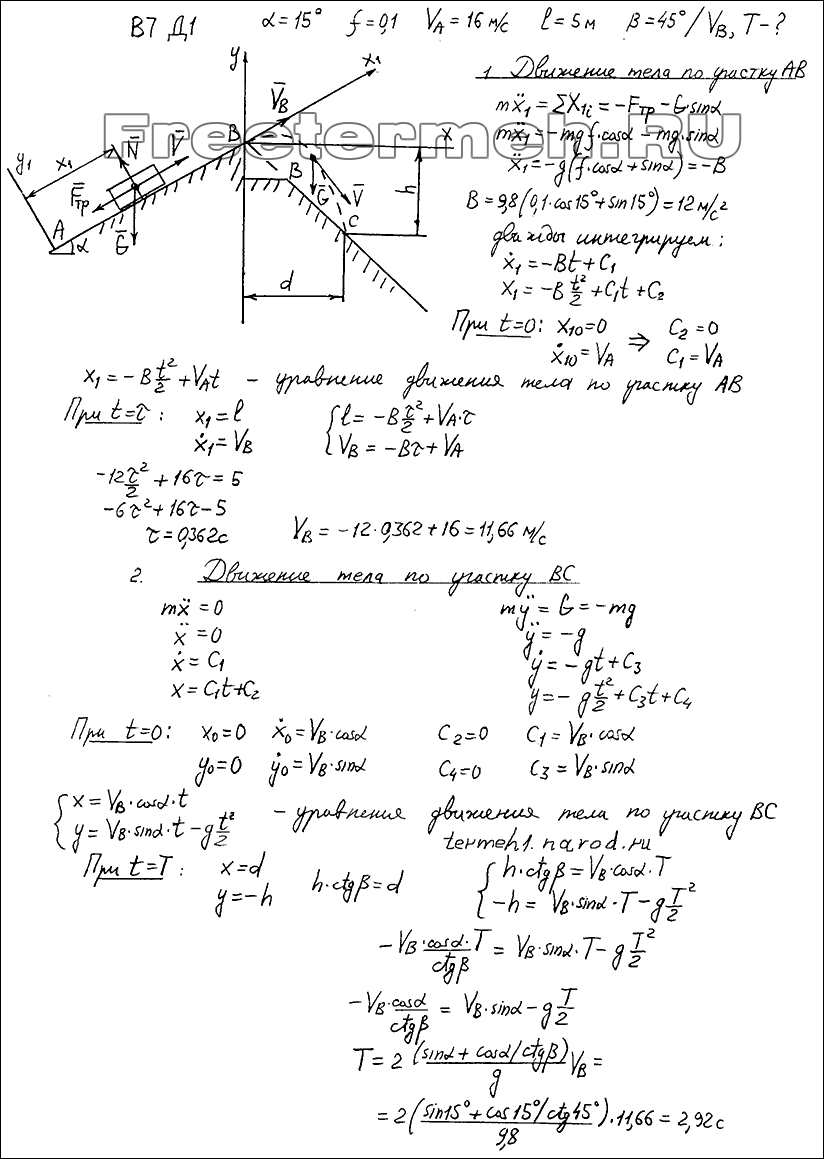 В7 Д1 α=15° f=0,1 V_A=16 м/с l=5м β=45° / V_B, T-?
1. Движение тела по участку АВ
mẍ₁=ΣX₁ᵢ=-Fтр-G sinα
mẍ₁=-mgf·cosα-mg·sinα
Freetermeh.RU
ẍ₁=-g(f·cosα+sinα)=-B
B=9,8(0,1·cos15°+sin15°)=12м/с²
дважды интегрируем:
ẋ₁=-Bt+C₁
x₁=-B t²/2+C₁t+C₂
y
x₁
V̄_B
B
x
y₁
x₁
N̄
V̄
F̄тр
Ḡ
A
α
B
Ḡ
V̄
C
h
d
При t=0: x₁₀=0 ⇒ C₂=0
ẋ₁₀=V_A C₁=V_A
x₁=-B t²/2+V_A t - уравнение движения тела по участку АВ
При t=τ: x₁=l { l=-B τ²/2+V_A·τ
ẋ₁=V_B V_B=-Bτ+V_A
-12 τ²/2+16τ=5
-6τ²+16τ-5
τ=0,362с V_B=-12·0,362+16=11,66 м/с
2. Движение тела по участку ВС
mẍ=0 mÿ=G=-mg
ẍ=0 ÿ=-g
ẋ=C₁ ẏ=-gt+C₃
x=C₁t+C₂ y=-g t²/2+C₃t+C₄
При t=0: x₀=0 ẋ₀=V_B·cosα C₂=0 C₁=V_B·cosα
y₀=0 ẏ₀=V_B·sinα C₄=0 C₃=V_B·sinα
{ x=V_B·cosα·t
y=V_B·sinα·t-g t²/2 - уравнения движения тела по участку ВС
termeh1.narod.ru
При t=T: x=d h·ctgβ=d { h·ctgβ=V_B·cosα·T
y=-h -h=V_B·sinα·T-g T²/2
-V_B·cosα·T/ctgβ=V_B·sinα·T-g T²/2
-V_B·cosα/ctgβ=V_B·sinα-g T/2
T=2 (sinα+cosα/ctgβ)/g V_B=
=2(sin15°+cos15°/ctg45°)/9,8·11,66=2,92с